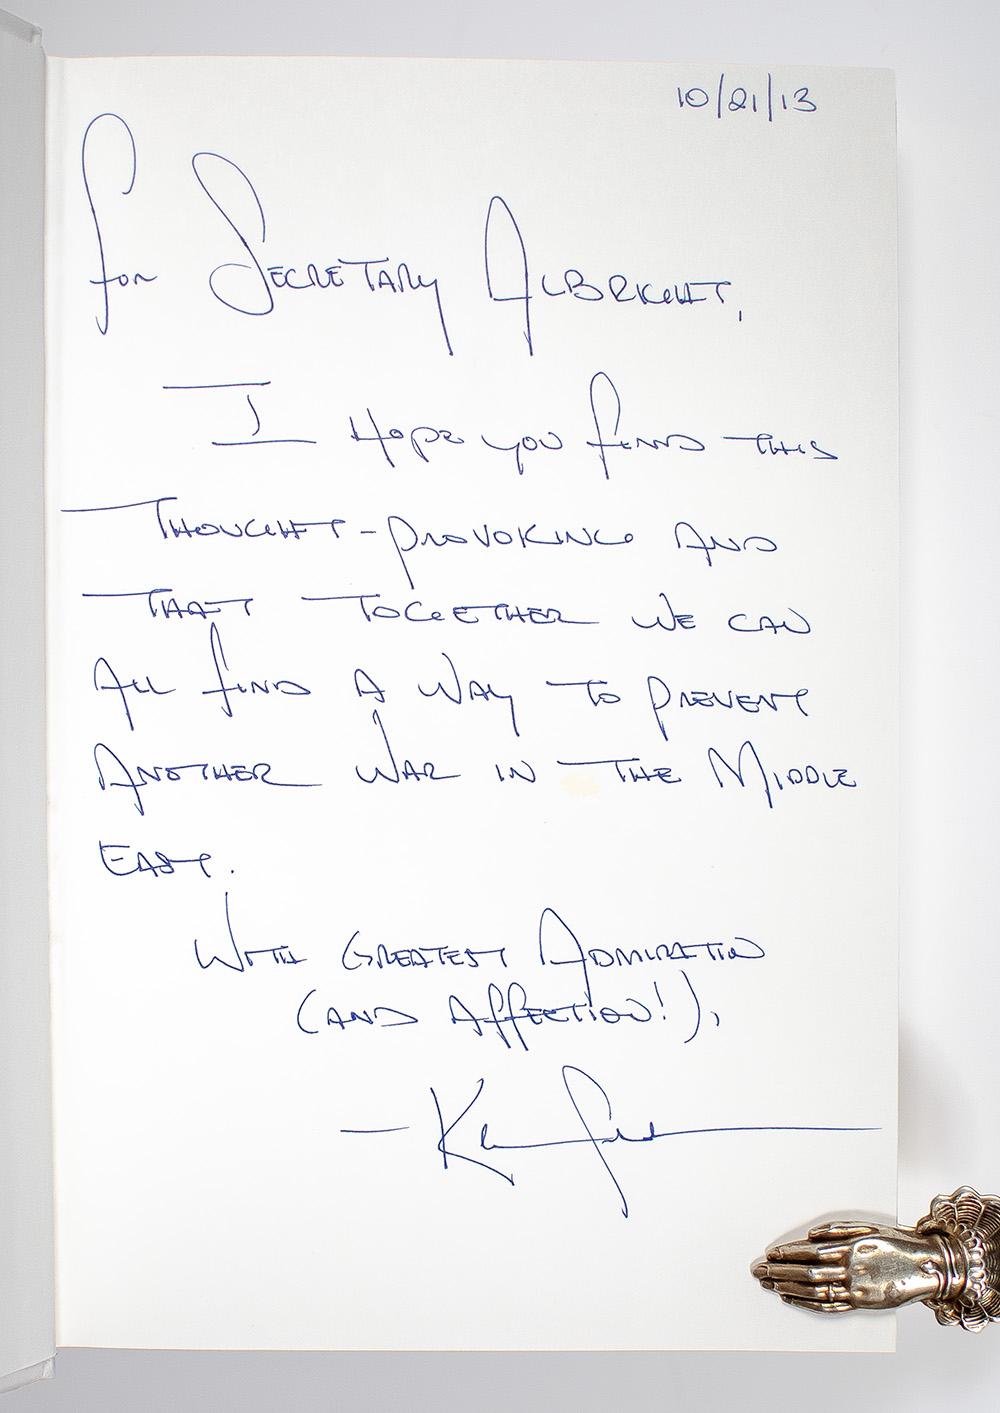 10/21/13
For Secretary Albright,
I Hope you find this
Thought-provoking and
That together we can
All find a way to prevent
Another war in the Middle
East.
With Greatest Admiration
(and Affection!),
- Ken